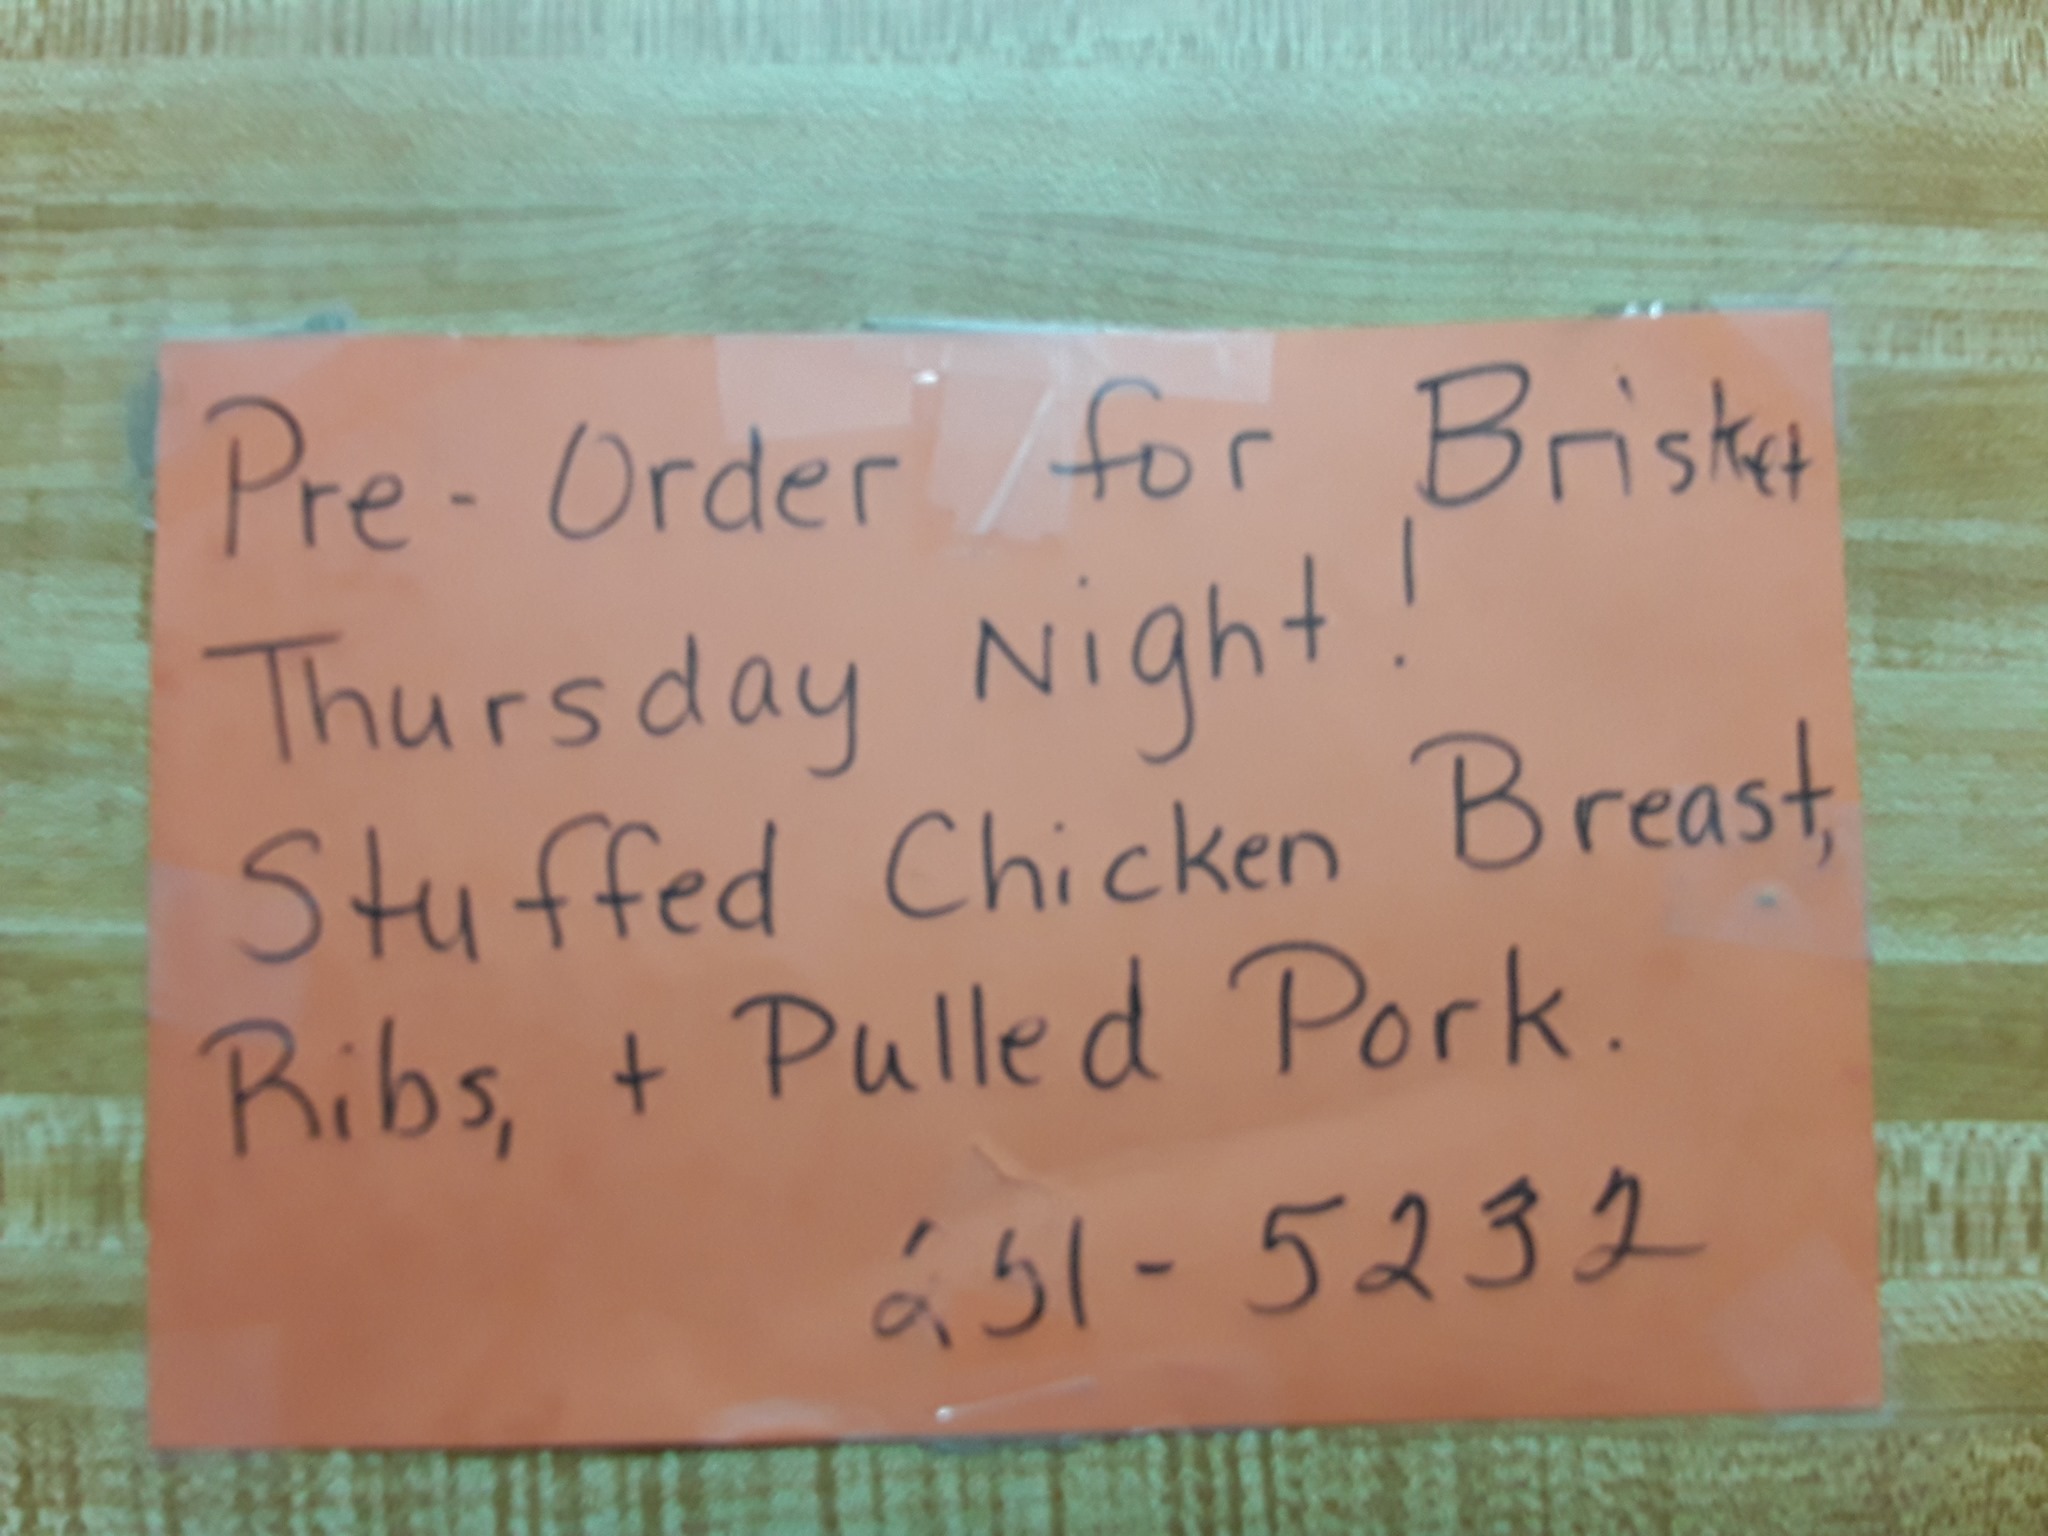 Pre-Order for Brisket
Thursday Night!
Stuffed Chicken Breast,
Ribs, + Pulled Pork.
251-5232